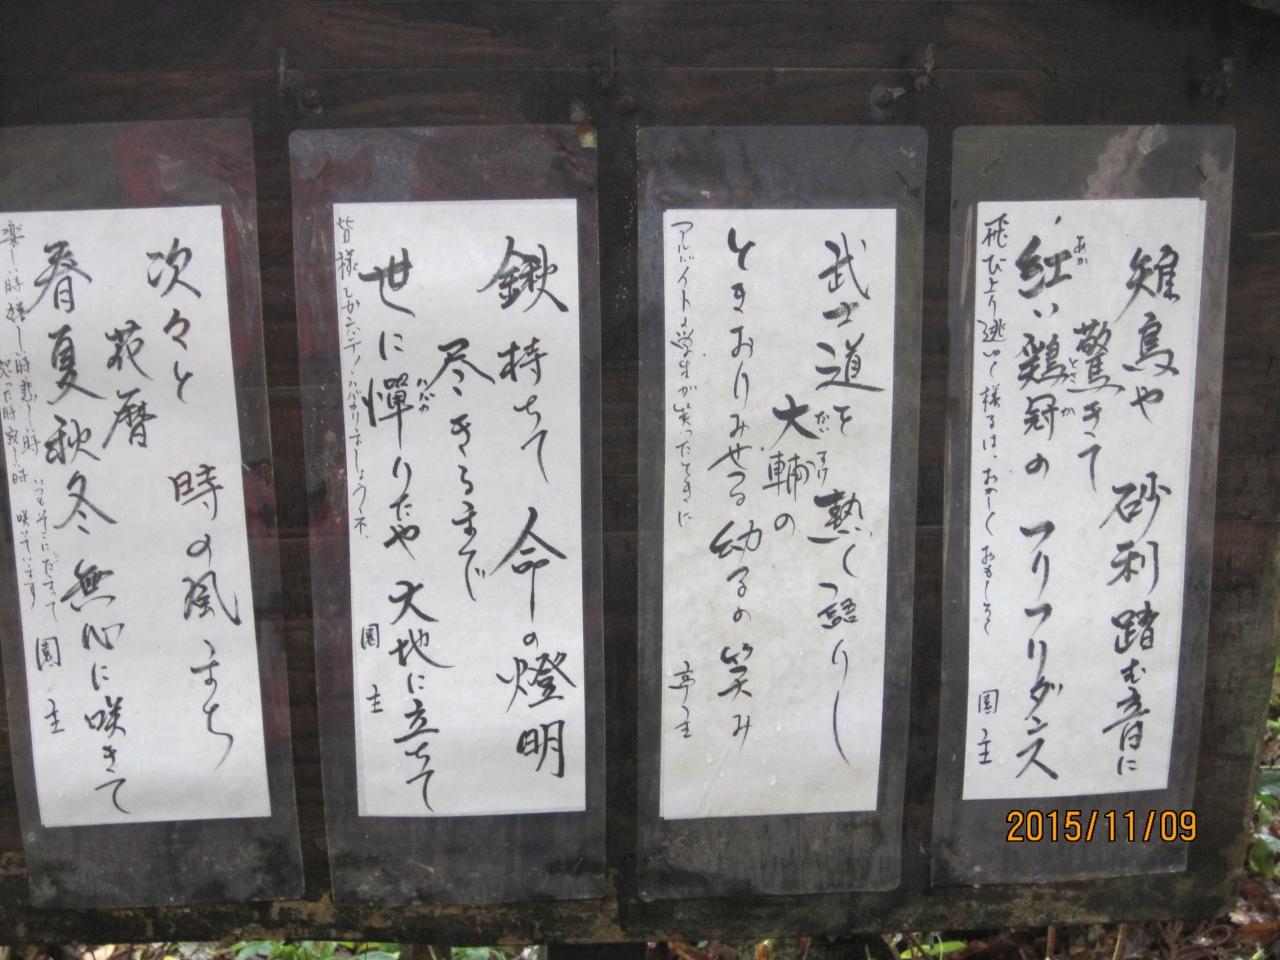 雉鳥や 砂利踏む音に
驚きて
紅い鶏冠の フリフリダンス
あか
とさか
飛びより逃いく様るは、おかしくおもしろく
園主
武士道を 熱く語りし
大輔の
だいすけ
ときおりみせる 幼るの笑み
アルバイトの学生が笑ったときに
亭主
鍬持ちて 命の燈明
尽きるまで
世に憚りたや 大地に立ちて
ハバカ
皆様も
園主
次々と 時の風まち
花暦
春夏秋冬 無心に咲きて
楽しい時 嬉し時 悲し時
いつもそこにだまって 咲いています
園主
2015/11/09